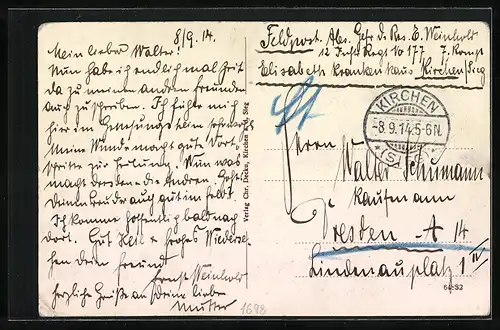 8/9. 14.
Mein lieber Walter!
Nun habe ich endlich mal Zeit
da zu meinen anderen Freunden
auch zu schreiben. Ich fühle mich
hier im Genesungsheim sehr
Meine Wunde macht gute Fort-
schritte zur Heilung. Nun was
macht der die Anderen. Geht
Deinem Bruder auch gut im Feld?
Ich komme hoffentlich bald nach
dort. Gut Heil & frohes Wiederse-
hen dein Freund
Ernst Weinholt
herzliche Grüße an deine liebe
Mutter
Verlag Chr. Decku, Kirchen a. d. Sieg
Feldpost. Abs. Gefr. d. Res. E. Weinholt
12 Inft Regt No 177 7. Komp
Elisabeth Krankenhaus Kirchen/Sieg
KIRCHEN
-8.9.14.5-6N.
* (SIEG)
Herrn
Walter Schumann
Kaufmann
Dresden - A 14
Lindenauplatz 1 IV
64:S2
1698